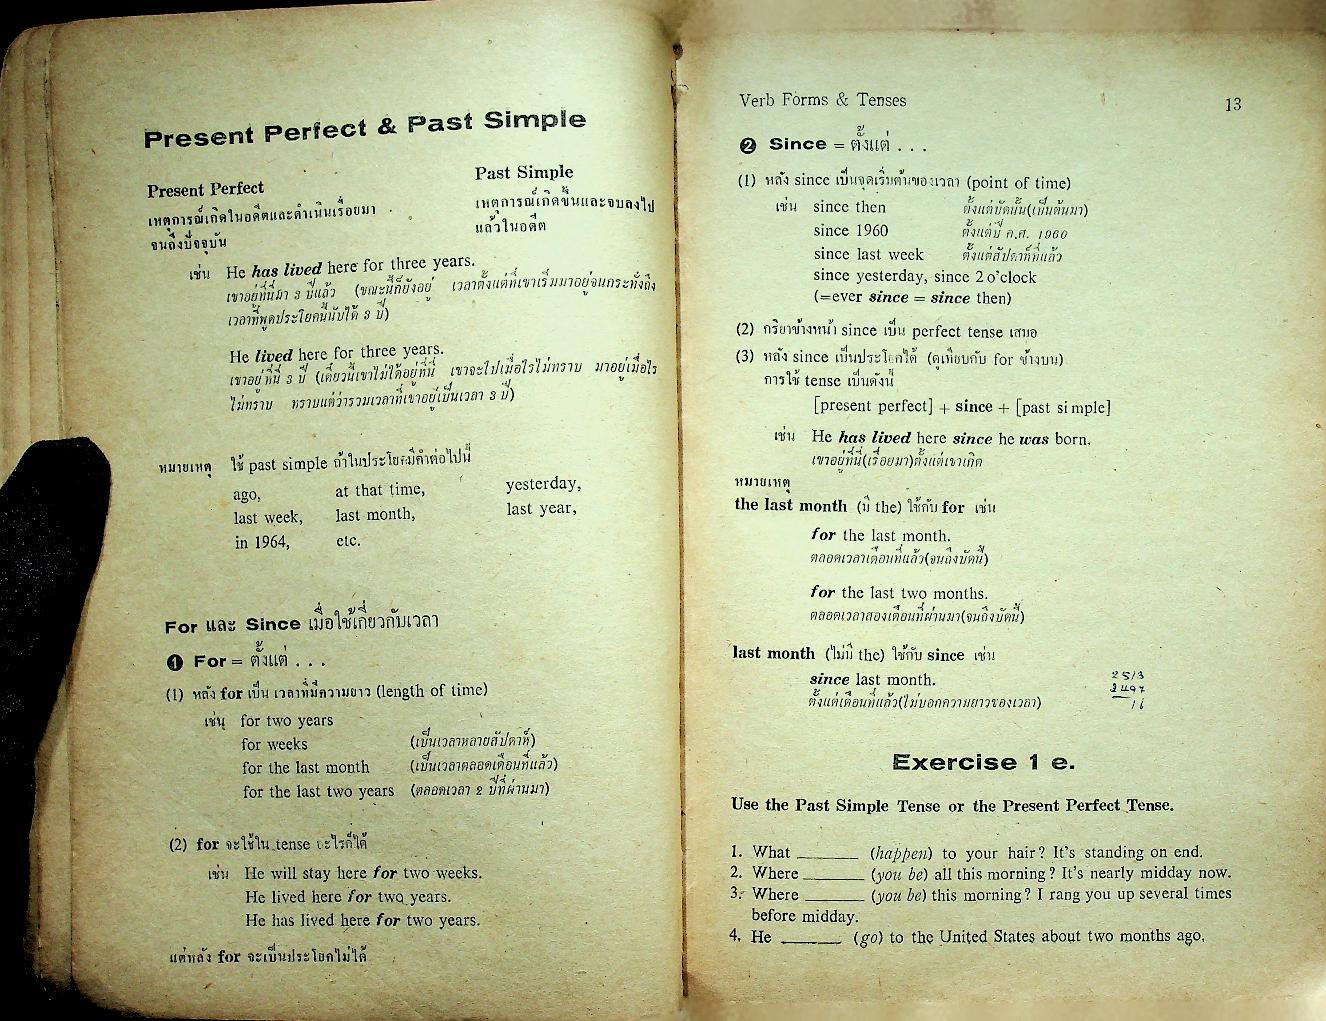 Present Perfect & Past Simple
Present Perfect
เหตุการณ์เกิดในอดีตและดำเนินเรื่อยมา
จนถึงปัจจุบัน
Past Simple
เหตุการณ์เกิดขึ้นและจบลงไป
แล้วในอดีต
เช่น He has lived here for three years.
เขาอยู่ที่นี่มา 3 ปีแล้ว (ขณะนี้ก็ยังอยู่ เวลาตั้งแต่ที่เขาเริ่มมาอยู่จนกระทั่งถึง
เวลาที่พูดประโยคนี้นับได้ 3 ปี)
He lived here for three years.
เขาอยู่ที่นี่ 3 ปี (เดี๋ยวนี้เขาไม่ได้อยู่ที่นี่ เขาจะไปเมื่อไรไม่ทราบ มาอยู่เมื่อไร
ไม่ทราบ ทราบแต่ว่ารวมเวลาที่เขาอยู่เป็นเวลา 3 ปี)
หมายเหตุ ใช้ past simple ถ้าในประโยคมีคำต่อไปนี้
ago, at that time, yesterday,
last week, last month, last year,
in 1964, etc.
For และ Since เมื่อใช้เกี่ยวกับเวลา
1 For = ตั้งแต่ . . .
(1) หลัง for เป็น เวลาที่มีความยาว (length of time)
เช่น for two years
for weeks (เป็นเวลาหลายสัปดาห์)
for the last month (เป็นเวลาตลอดเดือนที่แล้ว)
for the last two years (ตลอดเวลา 2 ปีที่ผ่านมา)
(2) for จะใช้ใน tense อะไรก็ได้
เช่น He will stay here for two weeks.
He lived here for two years.
He has lived here for two years.
แต่หลัง for จะเป็นประโยคไม่ได้
Verb Forms & Tenses 13
2 Since = ตั้งแต่ . . .
(1) หลัง since เป็นจุดเริ่มต้นของเวลา (point of time)
เช่น since then ตั้งแต่บัดนั้น(เป็นต้นมา)
since 1960 ตั้งแต่ปี ค.ศ. 1960
since last week ตั้งแต่สัปดาห์ที่แล้ว
since yesterday, since 2 o'clock
(=ever since = since then)
(2) กริยาข้างหน้า since เป็น perfect tense เสมอ
(3) หลัง since เป็นประโยคได้ (ดูเทียบกับ for ข้างบน)
การใช้ tense เป็นดังนี้
[present perfect] + since + [past simple]
เช่น He has lived here since he was born.
เขาอยู่ที่นี่(เรื่อยมา)ตั้งแต่เขาเกิด
หมายเหตุ
the last month (มี the) ใช้กับ for เช่น
for the last month.
ตลอดเวลาเดือนที่แล้ว(จนถึงบัดนี้)
for the last two months.
ตลอดเวลาสองเดือนที่ผ่านมา(จนถึงบัดนี้)
last month (ไม่มี the) ใช้กับ since เช่น
since last month.
ตั้งแต่เดือนที่แล้ว(ไม่บอกความยาวของเวลา)
2513
2497
16
Exercise 1 e.
Use the Past Simple Tense or the Present Perfect Tense.
1. What ______ (happen) to your hair? It's standing on end.
2. Where ______ (you be) all this morning? It's nearly midday now.
3. Where ______ (you be) this morning? I rang you up several times
before midday.
4. He ______ (go) to the United States about two months ago.